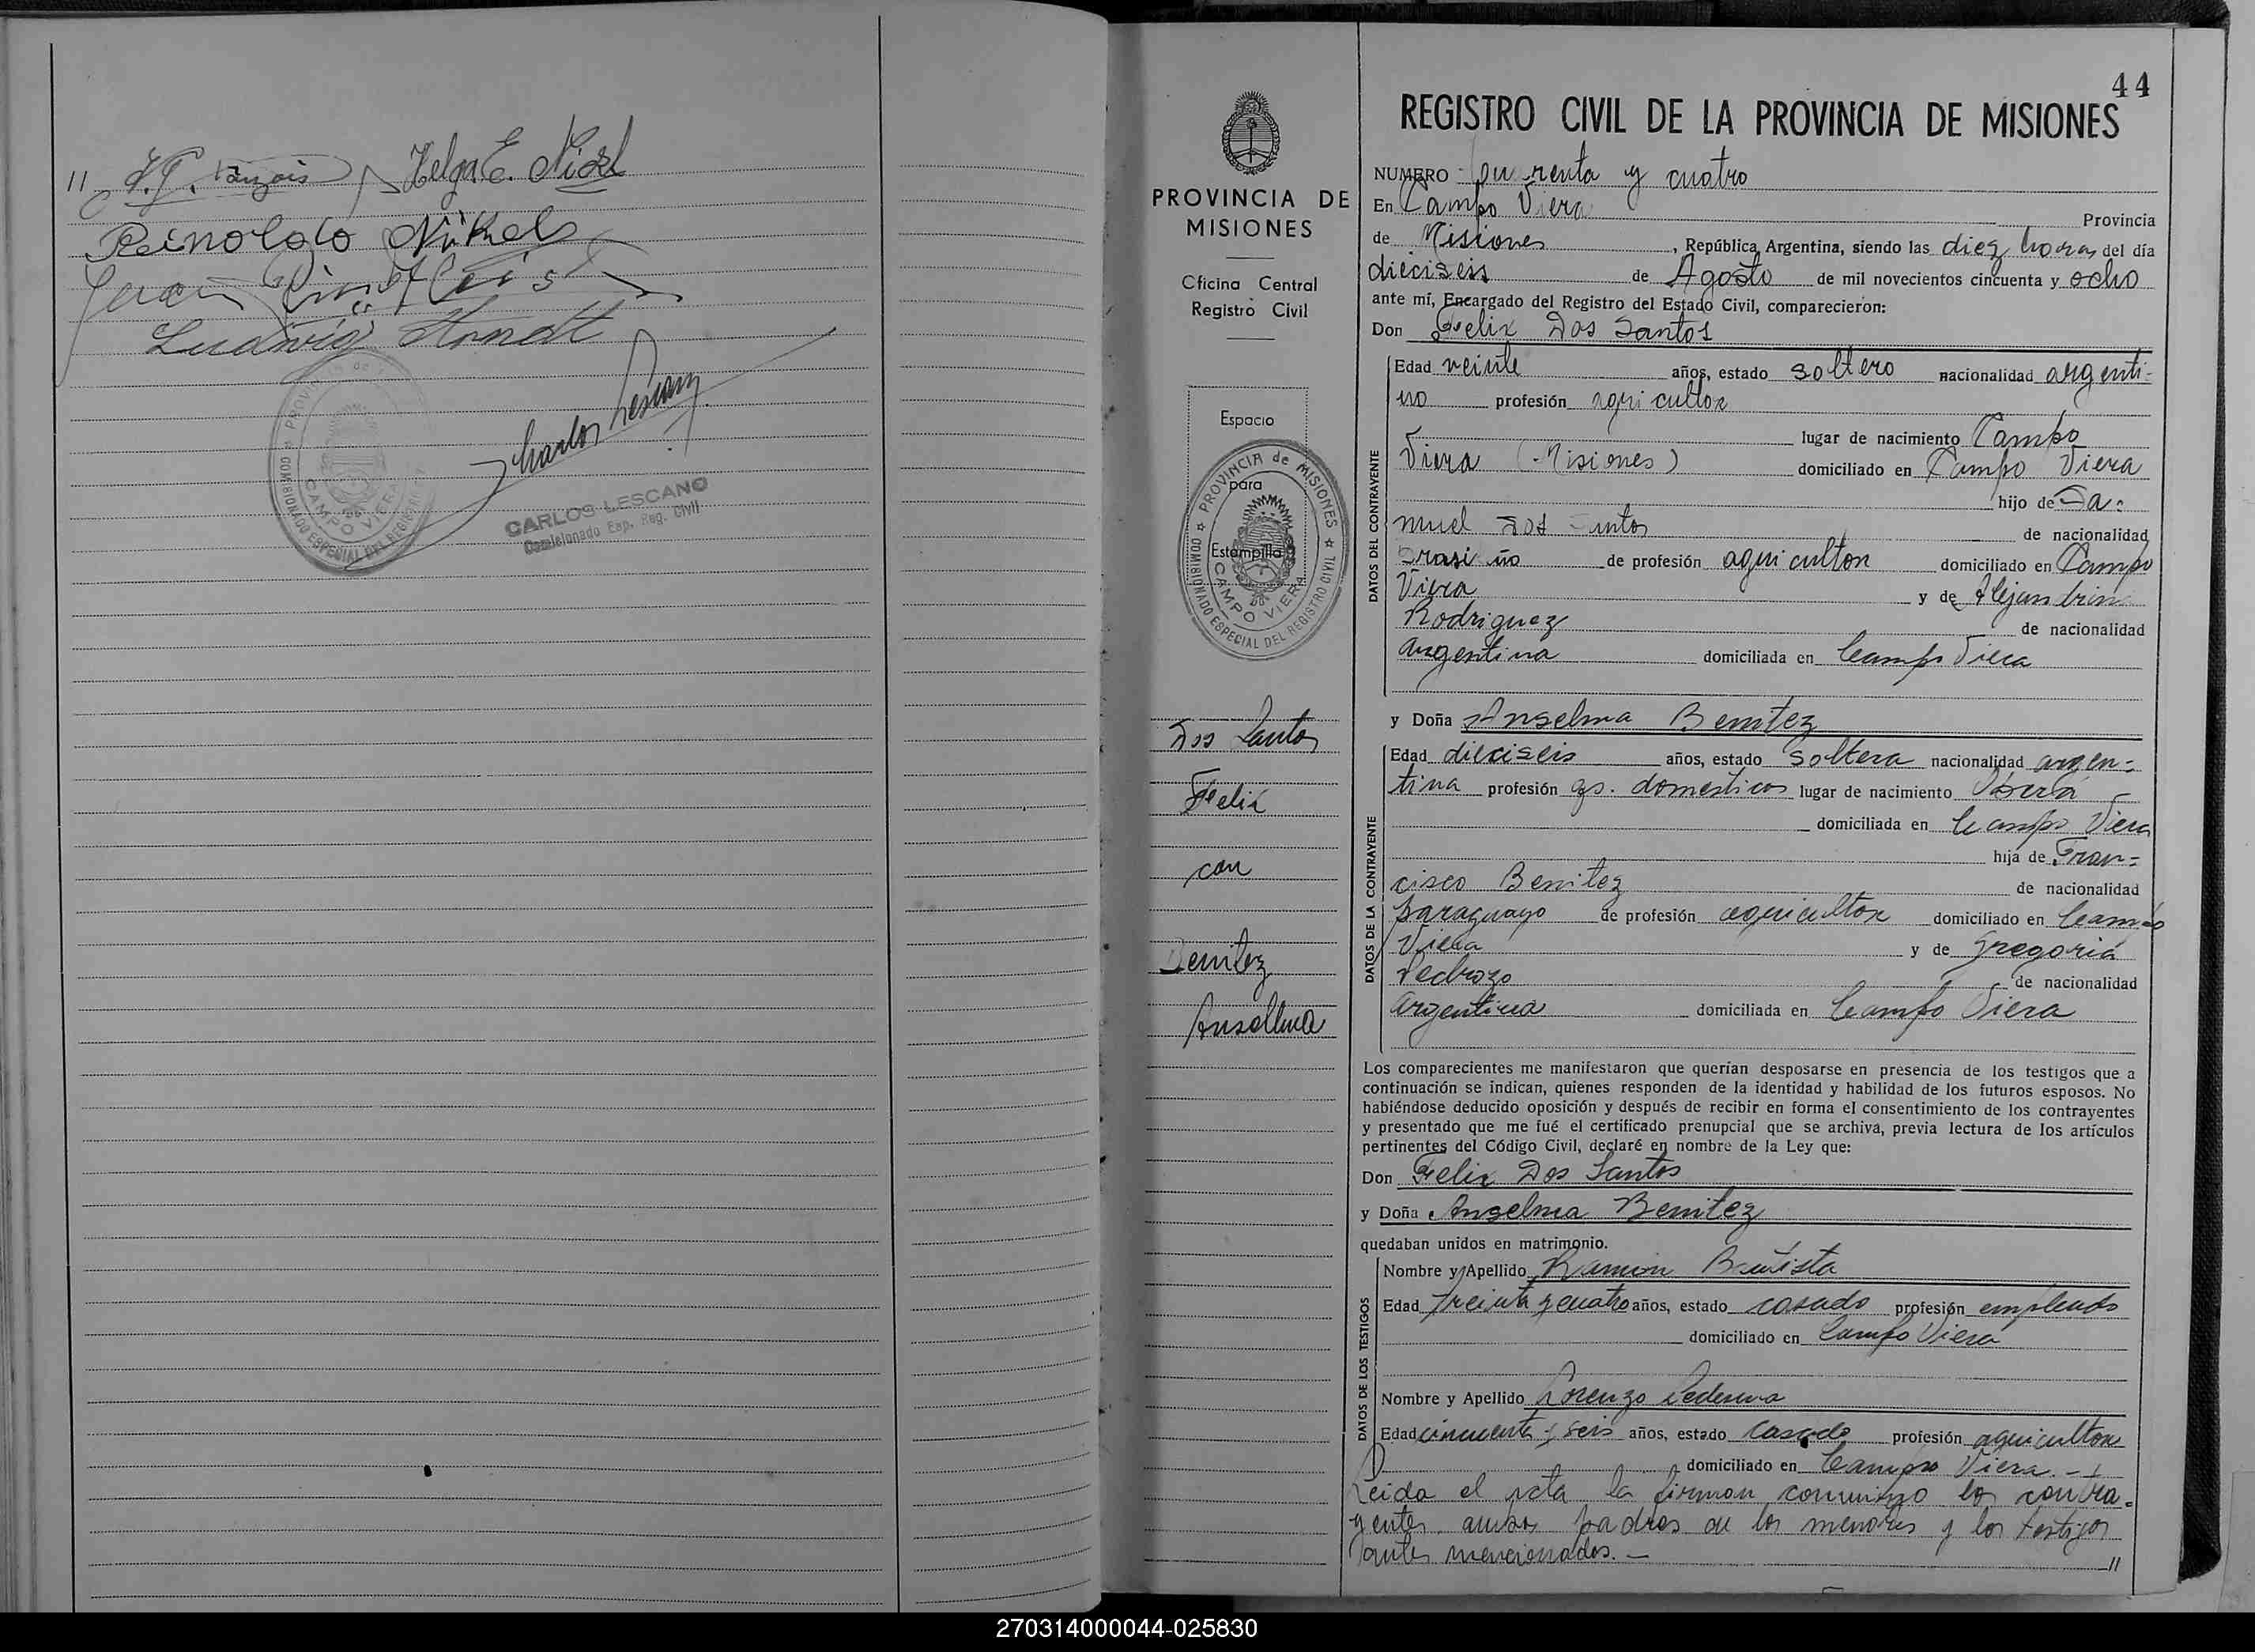 11 Helga E.
Reinoldo Nikels
Ludwig Arndt
PROVINCIA DE
COMISIONADO ESPECIAL DEL REGISTRO
CAMPO VIERA
Carlos Lescano
CARLOS LESCANO
Comisionado Esp. Reg. Civil
PROVINCIA DE
MISIONES
Oficina Central
Registro Civil
Espacio
para
Estampilla
PROVINCIA de MISIONES
COMISIONADO ESPECIAL DEL REGISTRO CIVIL
CAMPO VIERA
Dos Santos
Felix
con
Benitez
Anselma
44
REGISTRO CIVIL DE LA PROVINCIA DE MISIONES
NUMERO Cuarenta y cuatro
En Campo Viera Provincia
de Misiones, República Argentina, siendo las diez horas del día
dieciseis de Agosto de mil novecientos cincuenta y ocho
ante mí, Encargado del Registro del Estado Civil, comparecieron:
Don Felix Dos Santos
DATOS DEL CONTRAYENTE
Edad veinte años, estado soltero nacionalidad argenti-
no profesión agricultor
lugar de nacimiento Campo
Viera (Misiones) domiciliado en Campo Viera
hijo de
muel Dos Santos de nacionalidad
Brasileño de profesión agricultor domiciliado en Campo
Viera y de Alejandrina
Rodriguez de nacionalidad
argentina domiciliada en Campo Viera
y Doña Anselma Benitez
DATOS DE LA CONTRAYENTE
Edad dieciseis años, estado Soltera nacionalidad argen-
tina profesión qs. domesticos lugar de nacimiento Oberá
domiciliada en Campo Viera
hija de Fran-
cisco Benitez de nacionalidad
paraguayo de profesión agricultor domiciliado en Campo
Viera y de Gregoria
Pedrozo de nacionalidad
argentina domiciliada en Campo Viera
Los comparecientes me manifestaron que querían desposarse en presencia de los testigos que a
continuación se indican, quienes responden de la identidad y habilidad de los futuros esposos. No
habiéndose deducido oposición y después de recibir en forma el consentimiento de los contrayentes
y presentado que me fué el certificado prenupcial que se archiva, previa lectura de los artículos
pertinentes del Código Civil, declaré en nombre de la Ley que:
Don Felix Dos Santos
y Doña Anselma Benitez
quedaban unidos en matrimonio.
DATOS DE LOS TESTIGOS
Nombre y Apellido Ramon Bautista
Edad treinta y cuatro años, estado casado profesión empleado
domiciliado en Campo Viera
Nombre y Apellido Lorenzo Ledesma
Edad cincuenta y seis años, estado casado profesión agricultor
domiciliado en Campo Viera.
Leida el acta la firman conmigo los contra-
yentes, ambos padres de los menores y los testigos
antes mencionados. — //
270314000044-025830